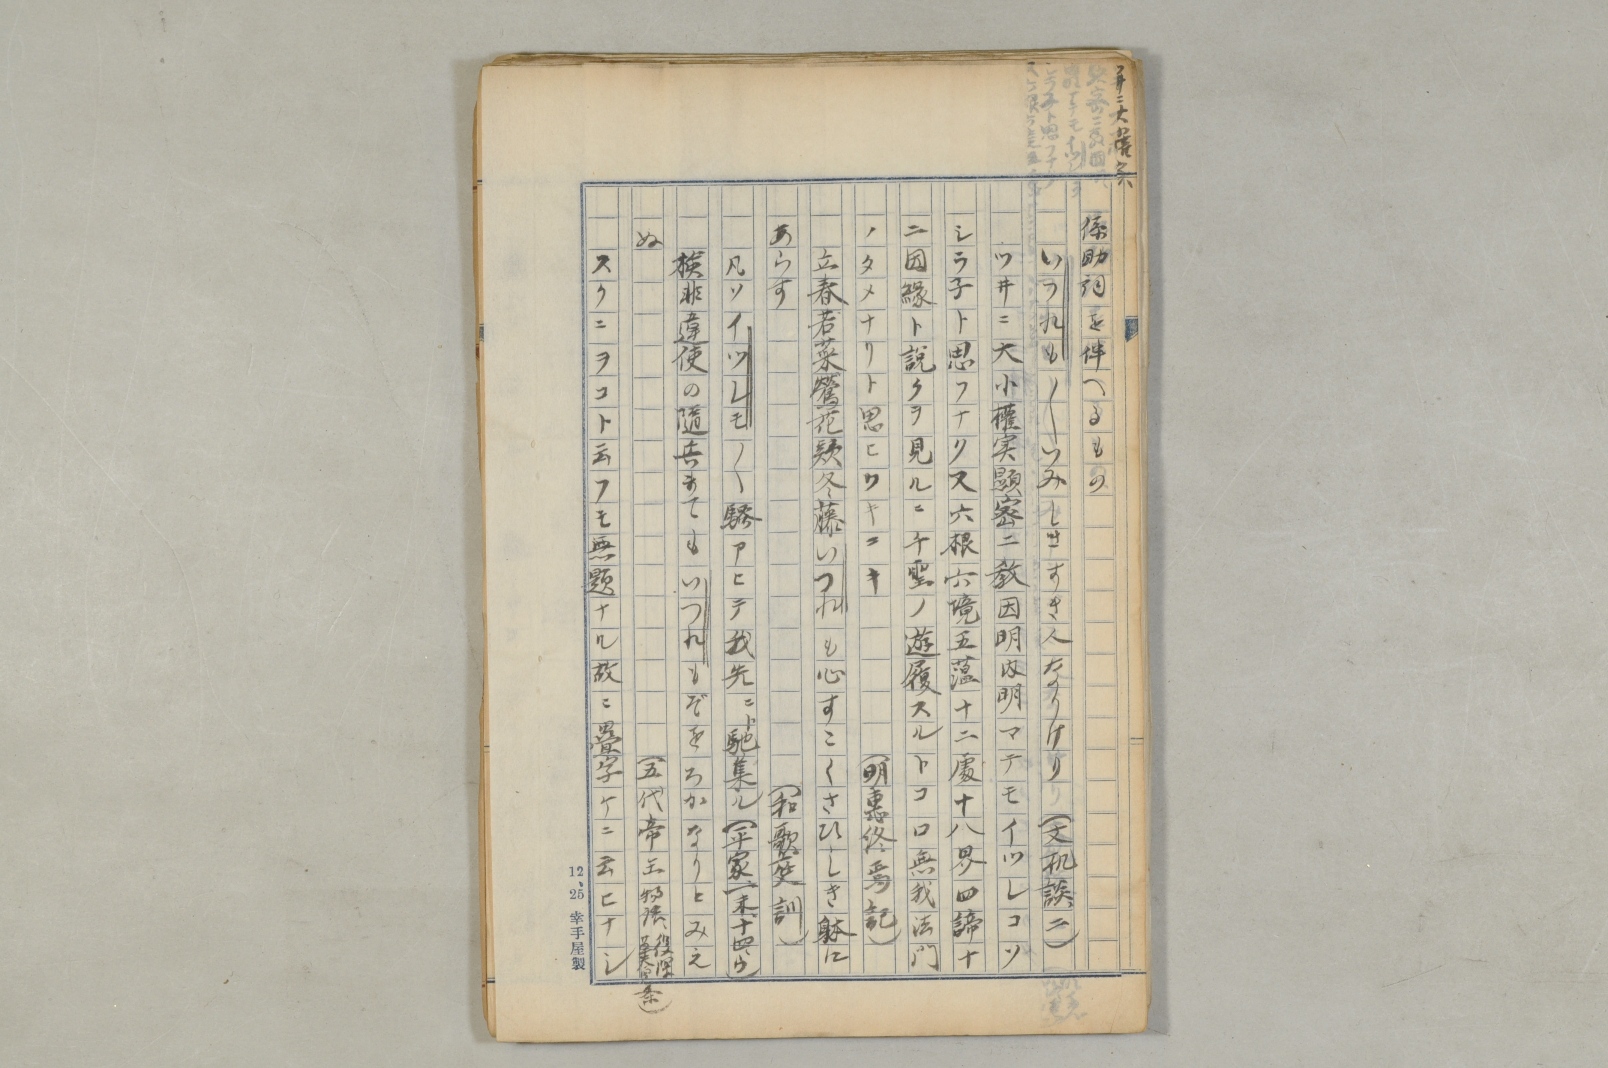 係助詞を伴へるもの
いつれも〱いみしきすき人なりけり（文机談二）
ツ井ニ大小權実顯密二教因明内明マテモイツレコソ
シラ子ト思フナリス六根六境五蘊十二處十八界四諦十
二因緣ト説クヲ見ルニ千聖ノ遊履スルトコロ無我法門
ノタメナリト思ヒワキニキ（明惠終焉記）
立春若菜鶯花欵冬藤いつれも心すこくさひしき躰に
あらす（和歌庭訓）
凡ソイツレモ〱騒アヒテ我先ニト馳集ル（平家一末十四ウ）
檢非違使の隨兵まてもいつれもぞをろかなりとみえ
ぬ（五代帝王物語、後深草条）
スクニヲコト云フモ無題ナル故ニ疊字ケニ云ヒナシ
12、25 幸手屋製